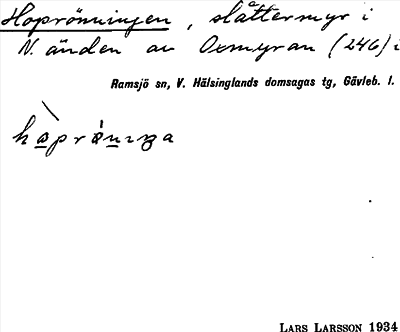 Hoprönningen, slåttermyr i
N. änden av Oxmyran (246) i
Ramsjö sn, V. Hälsinglands domsagas tg, Gävleb. l.
LARS LARSSON 1934